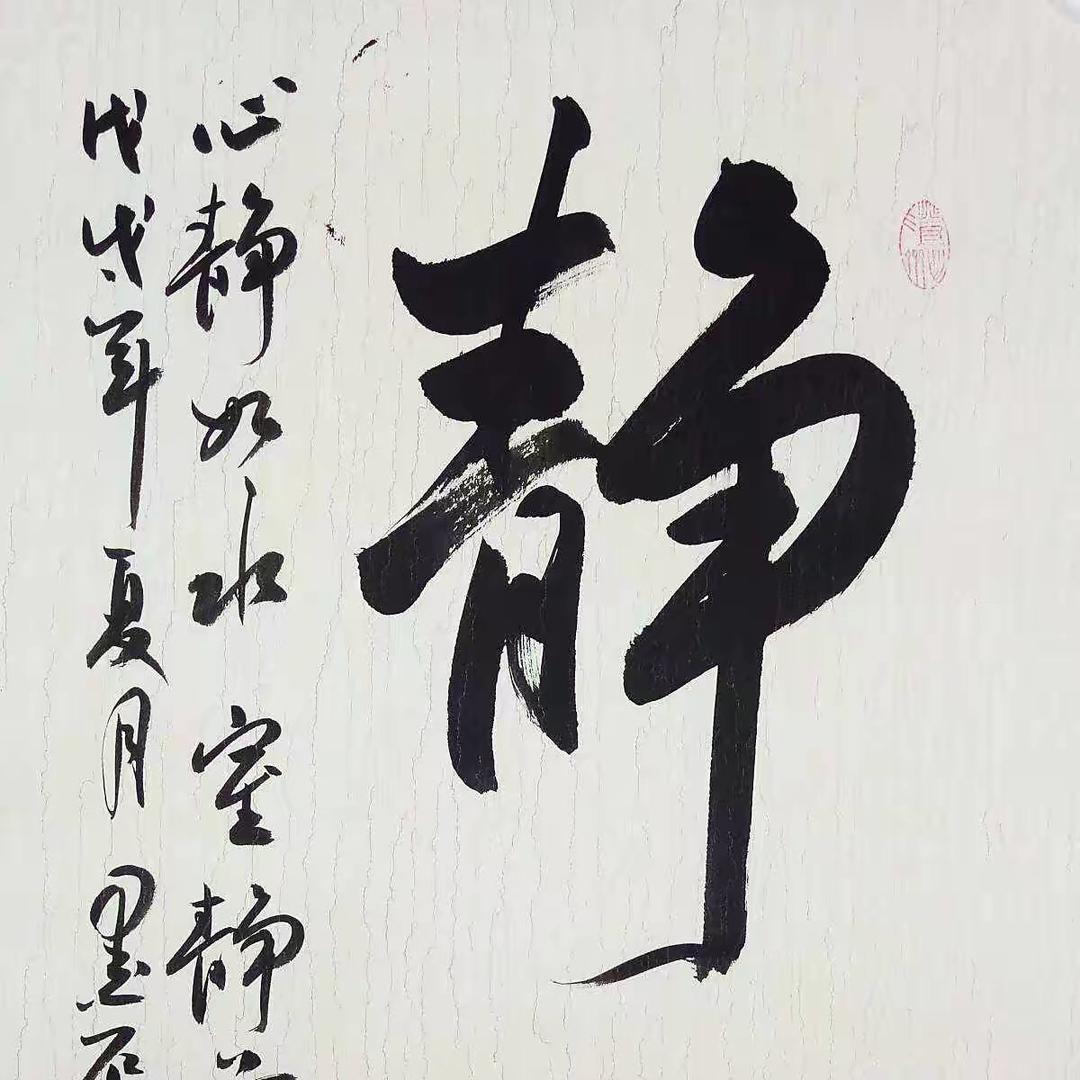 静
心静如水室静
戊戌年夏月墨石